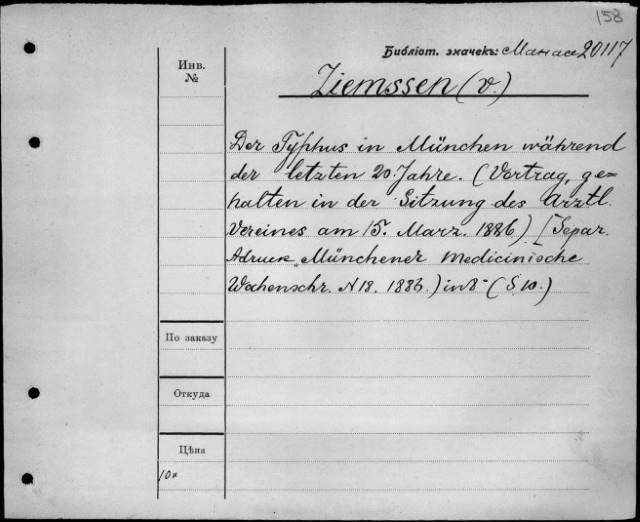 158
Библіот. значекъ: Манасе 20117
Инв.
№
Ziemssen (v.)
Der Typhus in München während
der letzten 20 Jahre. (Vortrag, ge=
halten in der Sitzung des Arztl.
Vereines am 15. Marz. 1886) [Separ.
Adruck „Münchener medicinische
Wochenschr. N 18. 1886.) in 8° (S 10.)
По заказу
Откуда
Цѣна
10к